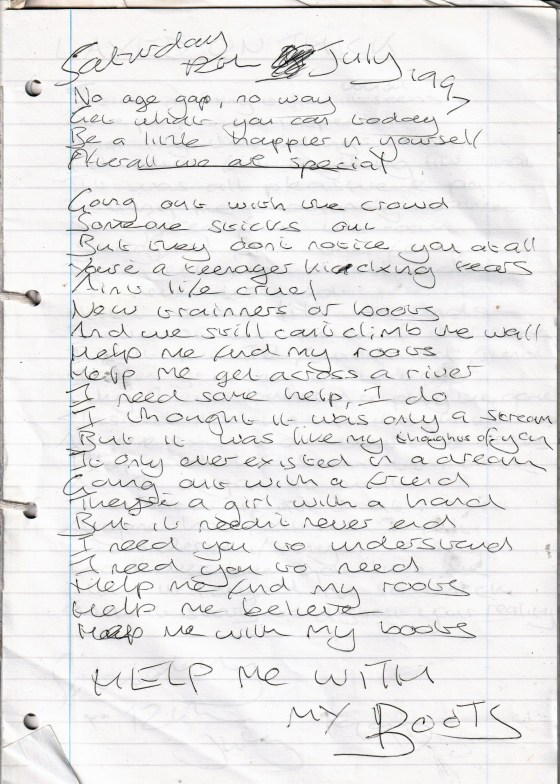 Saturday July 1997
No age gap, no way
Get what you can today
Be a little happier in yourself
Afterall we al special
Going out with the crowd
Someone sticks out
But they don't notice you at all
You're a teenager kicking tears
Aint life cruel
New trainners or boots
And we still can't climb the wall
Help me find my roots
Help me get across a river
I need some help, I do
I thought it was only a stream
But it was like my thoughts of you
It only ever existed in a dream
Going out with a friend
There's a girl with a hand
But it needn't never end
I need you to understand
I need you to need
Help me find my roots
Help me believe
Help me with my boots
HELP ME WITH
MY BOOTS